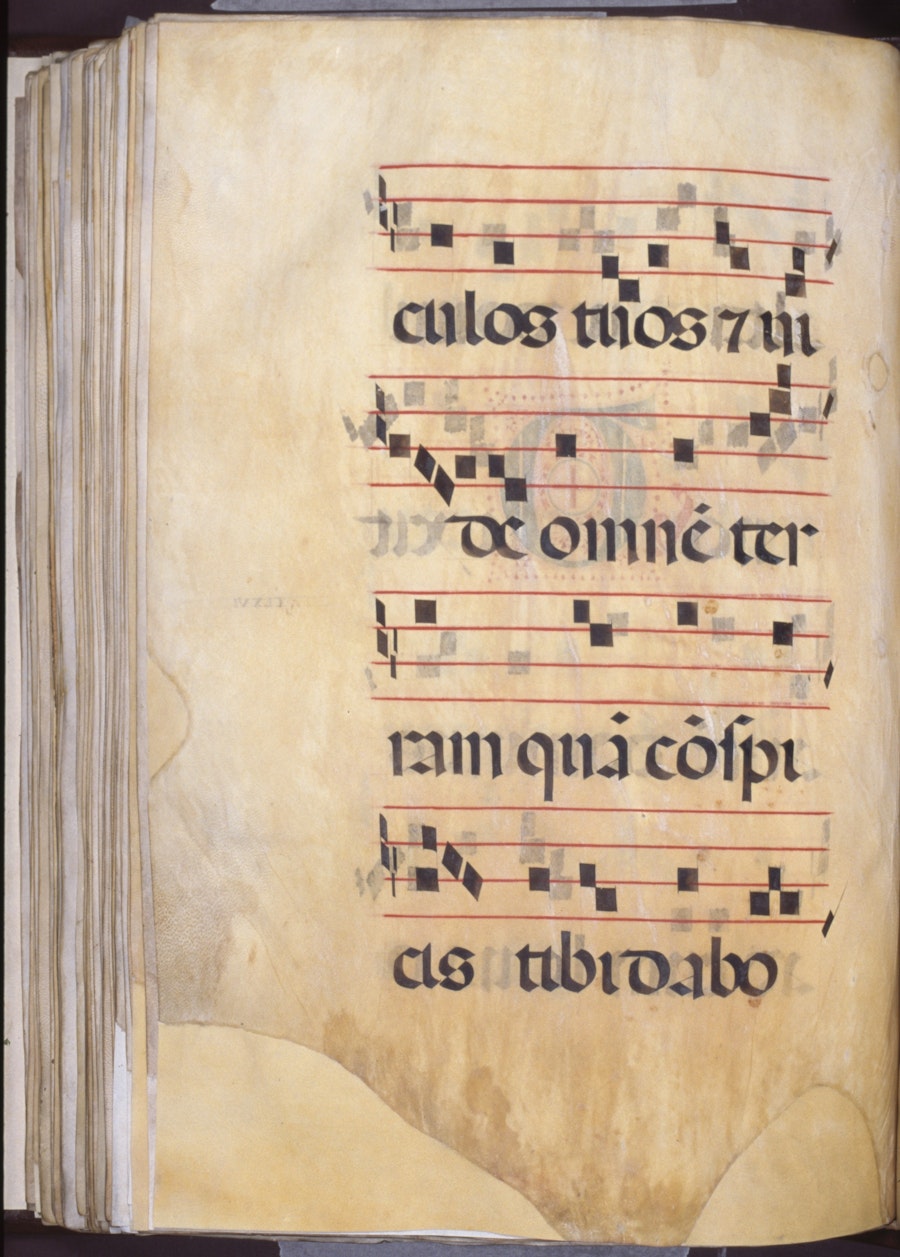 culos tuos ⁊ ui
de omnē ter
ram quā cōspi
cis tibi dabo